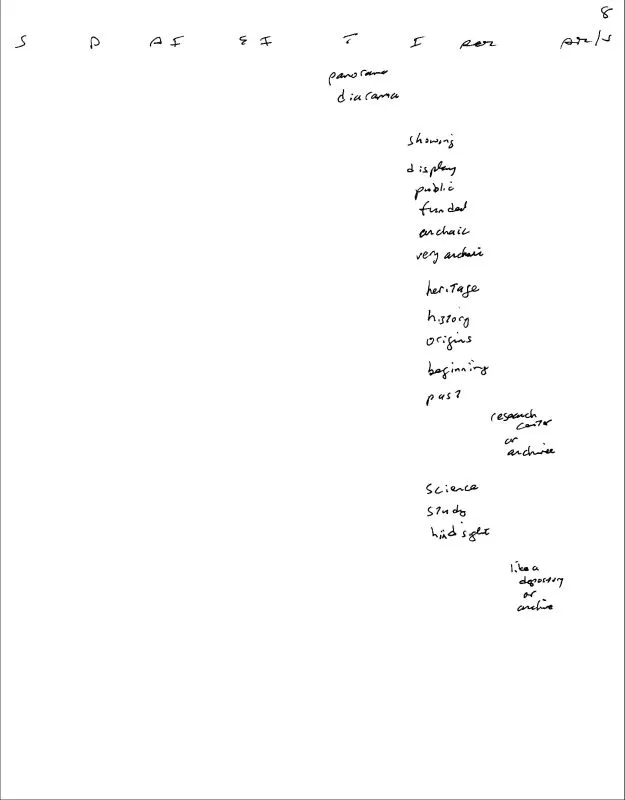 8
S D AI EI T I AOL AOL/S
panorama
diarama
showing
display
public
funded
archaic
very archaic
heritage
history
origins
beginning
past
research
center
or
archive
science
study
hindsight
like a
depository
or
archive